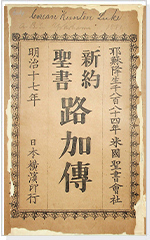 Corean Kunten Luke
耶穌降生千八百八十四年 米國聖書會社
新約
聖書
路加傳
明治十七年
日本橫濱印行